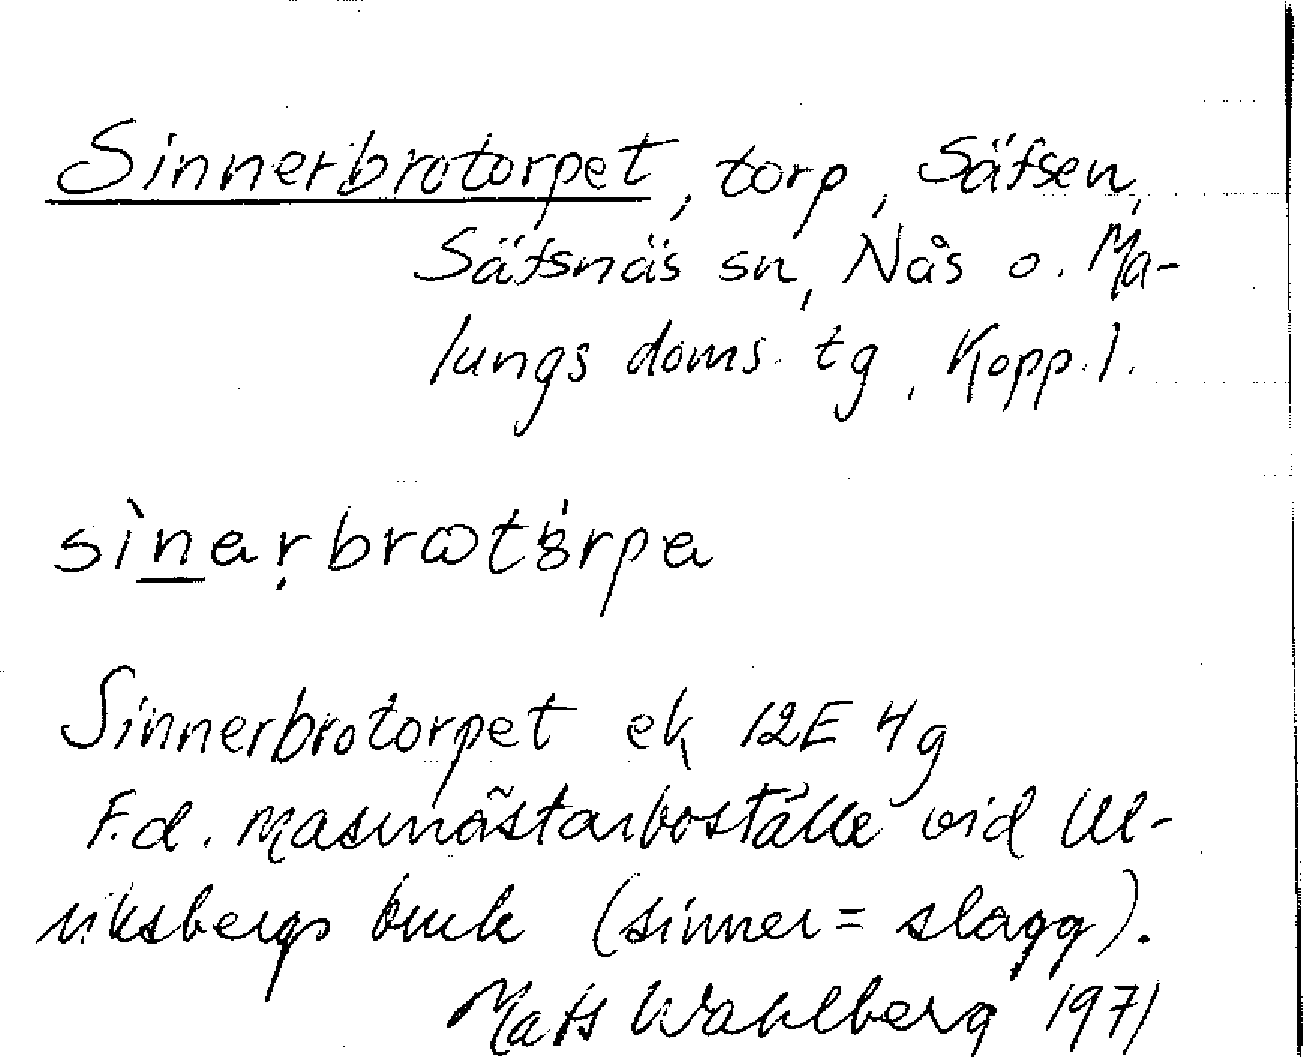 Sinnerbrotorpet, torp, Säfsen,
Säfsnäs sn, Nås o. Ma-
lungs doms. tg, Kopp. l.
sìnarbrωtǻrpa
Sinnerbrotorpet ek 12E 4g
F.d. masmästarboställe vid Ul-
riksbergs bruk (sinner = slagg).
Mats Wahlberg 1971